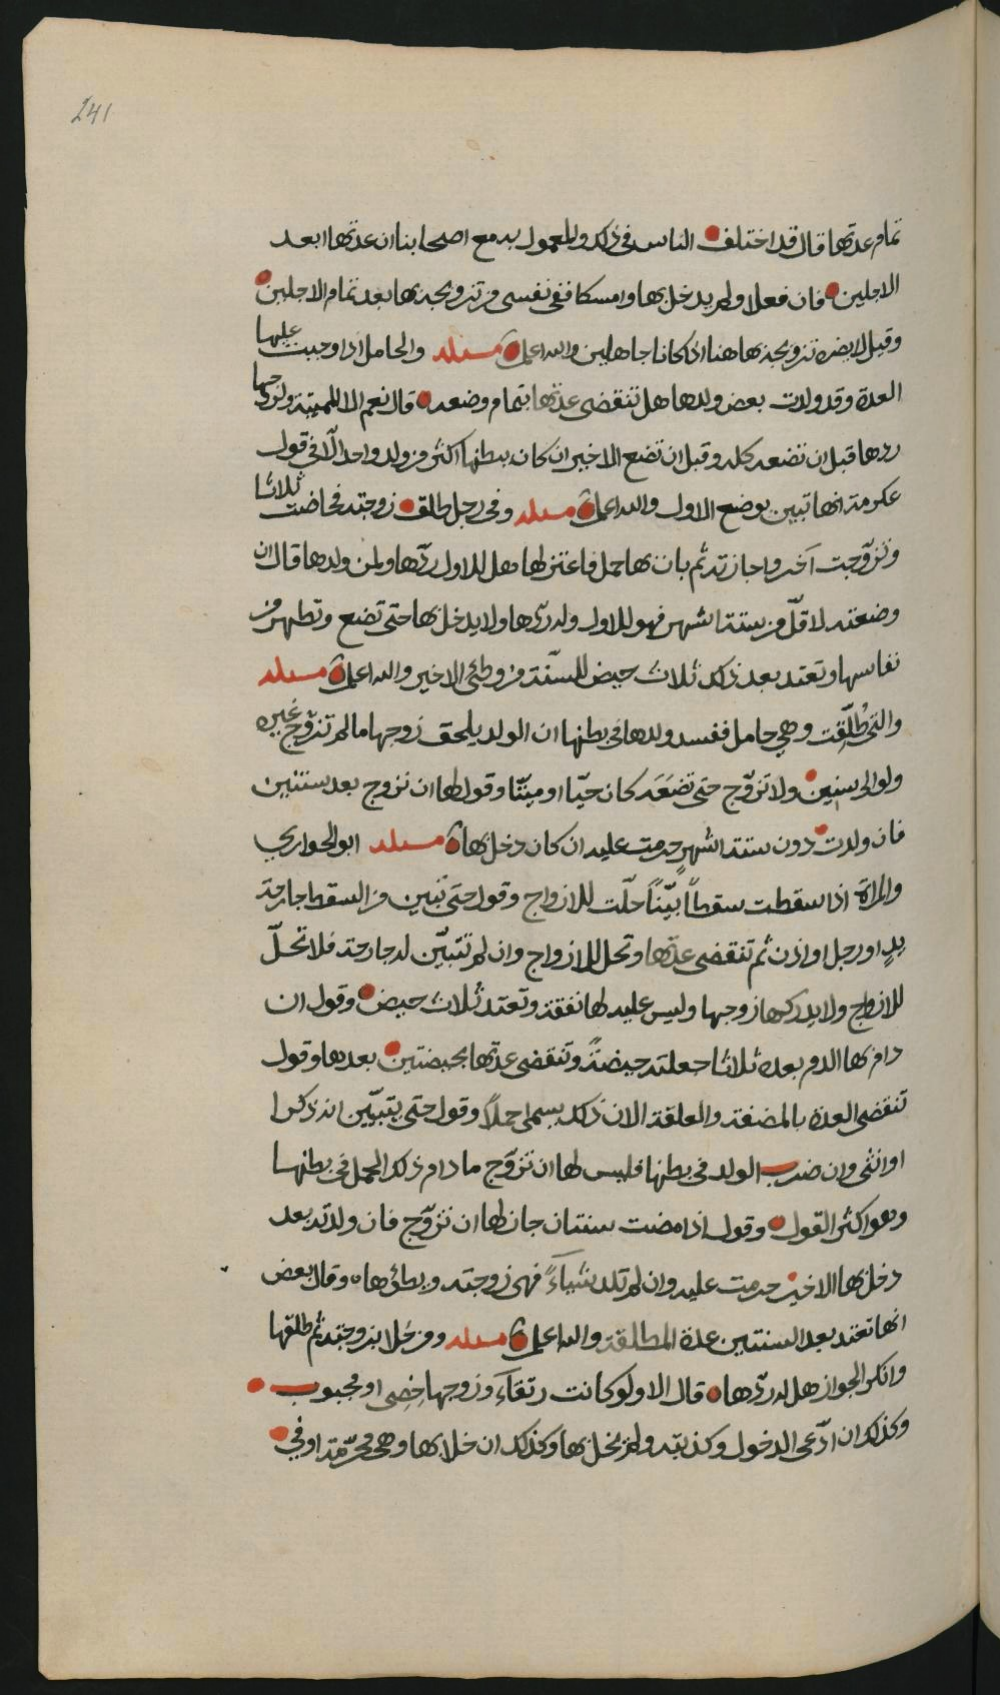 241
تمام عدتها قال قد اختلف الناس في ذلك والمعمول به مع اصحابنا ان عدتها ابعد
الاجلين فان فعلا ولم يدخل بها وامسكا ففي نفسي من تزويجه بها بعد تمام الاجلين
وقيل لا يضره تزويجه بها هنا اذا كانا جاهلين والله اعلم مسئلة والحامل اذا وجبت عليها
العدة وقد ولدت بعض ولدها هل تنقضي عدتها بتمام وضعه قال نعم الا المميتة ولزوجها
ردها قبل ان تضعه كله وقبل ان تضع الاخير ان كان ببطنها اكثر من ولد واحد الّا في قول
عكرمة انها تبين بوضع الاول والله اعلم مسئلة وفي رجل طالق زوجته فحاضت ثلاثا
وتزوّجت آخر واجازته ثم بان بها حمل فاعتزلها هل للاول ردّها ولمن ولدها قال ان
وضعته لاقلّ من ستة اشهر فهو للاول وله ردّها ولا يدخل بها حتى تضع وتطهر من
نفاسها وتعتد بعد ذلك ثلاث حيض للسنّة من وطئ الاخير والله اعلم مسئلة
والتي طُلِّقت وهي حامل ففسد ولدها في بطنها ان الولد يلحق زوجها ما لم تزوّج غيره
ولو الى سنين ولا تزوّج حتى تضعَه كان حيّا او ميتّا وقول لها ان تزوج بعد سنتين
فان ولدت دون ستة اشهرٍ حرمت عليه ان كان دخل بها مسئلة ابو الحواري
والمراة اذا سقطت سقطاً بيّناً حلّت للازواج وقول حتى تبين من السقط جارحة
يدٍ او رجل او اذن ثم تنقضي عدتها وتحل للازواج وان لم تتبيّن له جارحة فلا تحلّ
للازواج ولا يدركها زوجها وليس عليه لها نفقة وتعتد ثلاث حيض وقول ان
دام بها الدم بعده ثلاثا جعلته حيضةً وتنقضي عدتها بحيضتين بعدها وقول
تنقضي العدة بالمضغة والعلقة الان ذلك يسمى حملاً وقول حتى يتبيّن انه ذكرا
او انثى وان ضرب الولد في بطنها فليس لها ان تزوّج ما دام ذلك الحمل في بطنها
وهو اكثر القول وقول اذا مضت سنتان جاز لها ان تزوّج فان ولدته بعد
دخل بها الاخير حرمت عليه وان لم تلد شياءً فهي زوجته ويطؤها وقال بعض
انها تعتد بعد السنتين عدة المطلقة والله اعلم مسئلة ومن خلا بزوجته ثم طلقها
وانكر الجواز هل له ردّها قال الا ولو كانت رتقاءَ وزوجها خصي او مجبوب
وكذلك ان ادّعى الدخول وكذبته ولم يخل بها وكذلك ان خلا بها وهي محرّمة او في